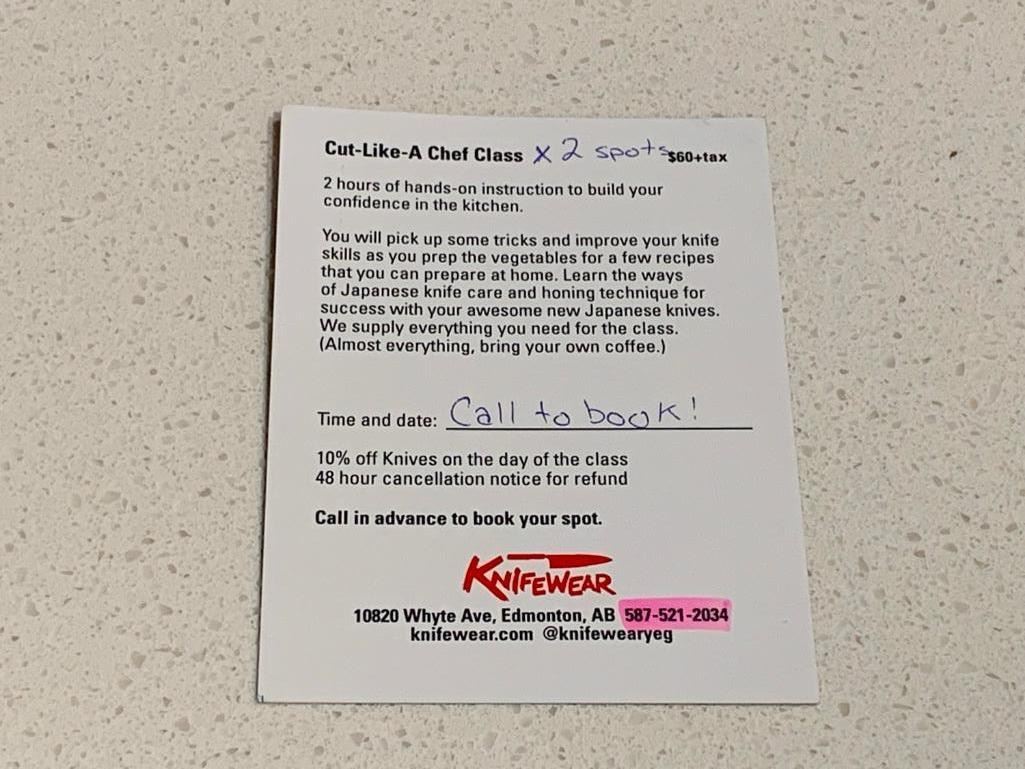 Cut-Like-A Chef Class x 2 spots $60+tax
2 hours of hands-on instruction to build your
confidence in the kitchen.
You will pick up some tricks and improve your knife
skills as you prep the vegetables for a few recipes
that you can prepare at home. Learn the ways
of Japanese knife care and honing technique for
success with your awesome new Japanese knives.
We supply everything you need for the class.
(Almost everything, bring your own coffee.)
Time and date: Call to book!
10% off Knives on the day of the class
48 hour cancellation notice for refund
Call in advance to book your spot.
KNIFEWEAR
10820 Whyte Ave, Edmonton, AB 587-521-2034
knifewear.com @knifewearyeg